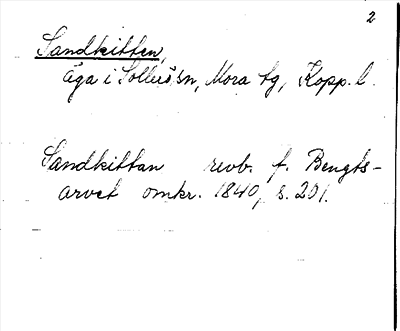 2
Sandkitten,
äga i Sollerö sn, Mora tg, Kopp. l.
Sandkittan revb. f. Bengts-
arvet omkr. 1840, s. 201.